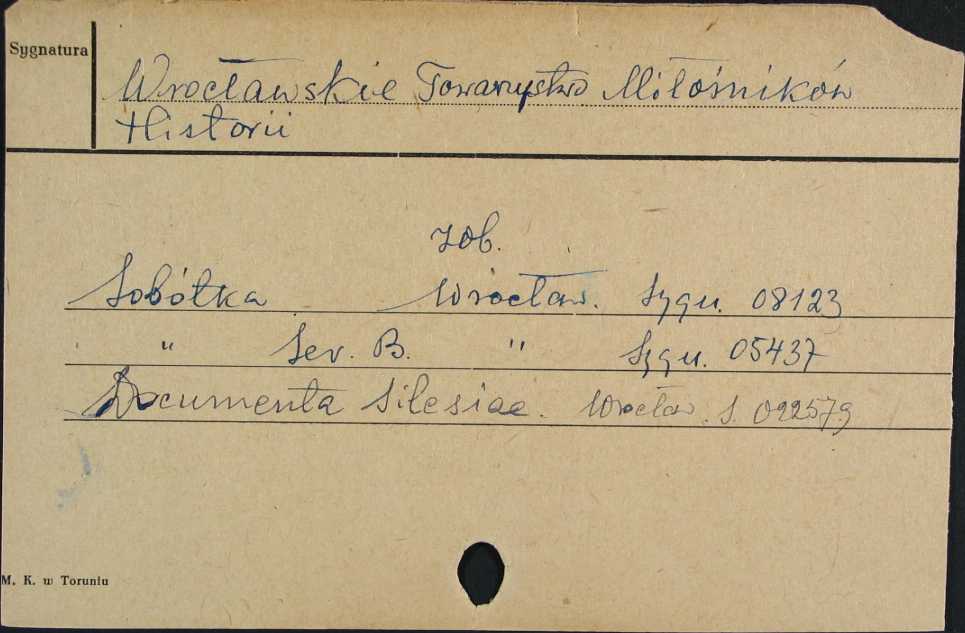 Sygnatura
Wrocławskie Towarzystwo Miłośników
Historii
zob.
Sobótka Wrocław. Sygn. 08123
" Ser. B. " Sygn. 05437
Documenta Silesiae. Wrocław. S. 022579
M. K. w Toruniu